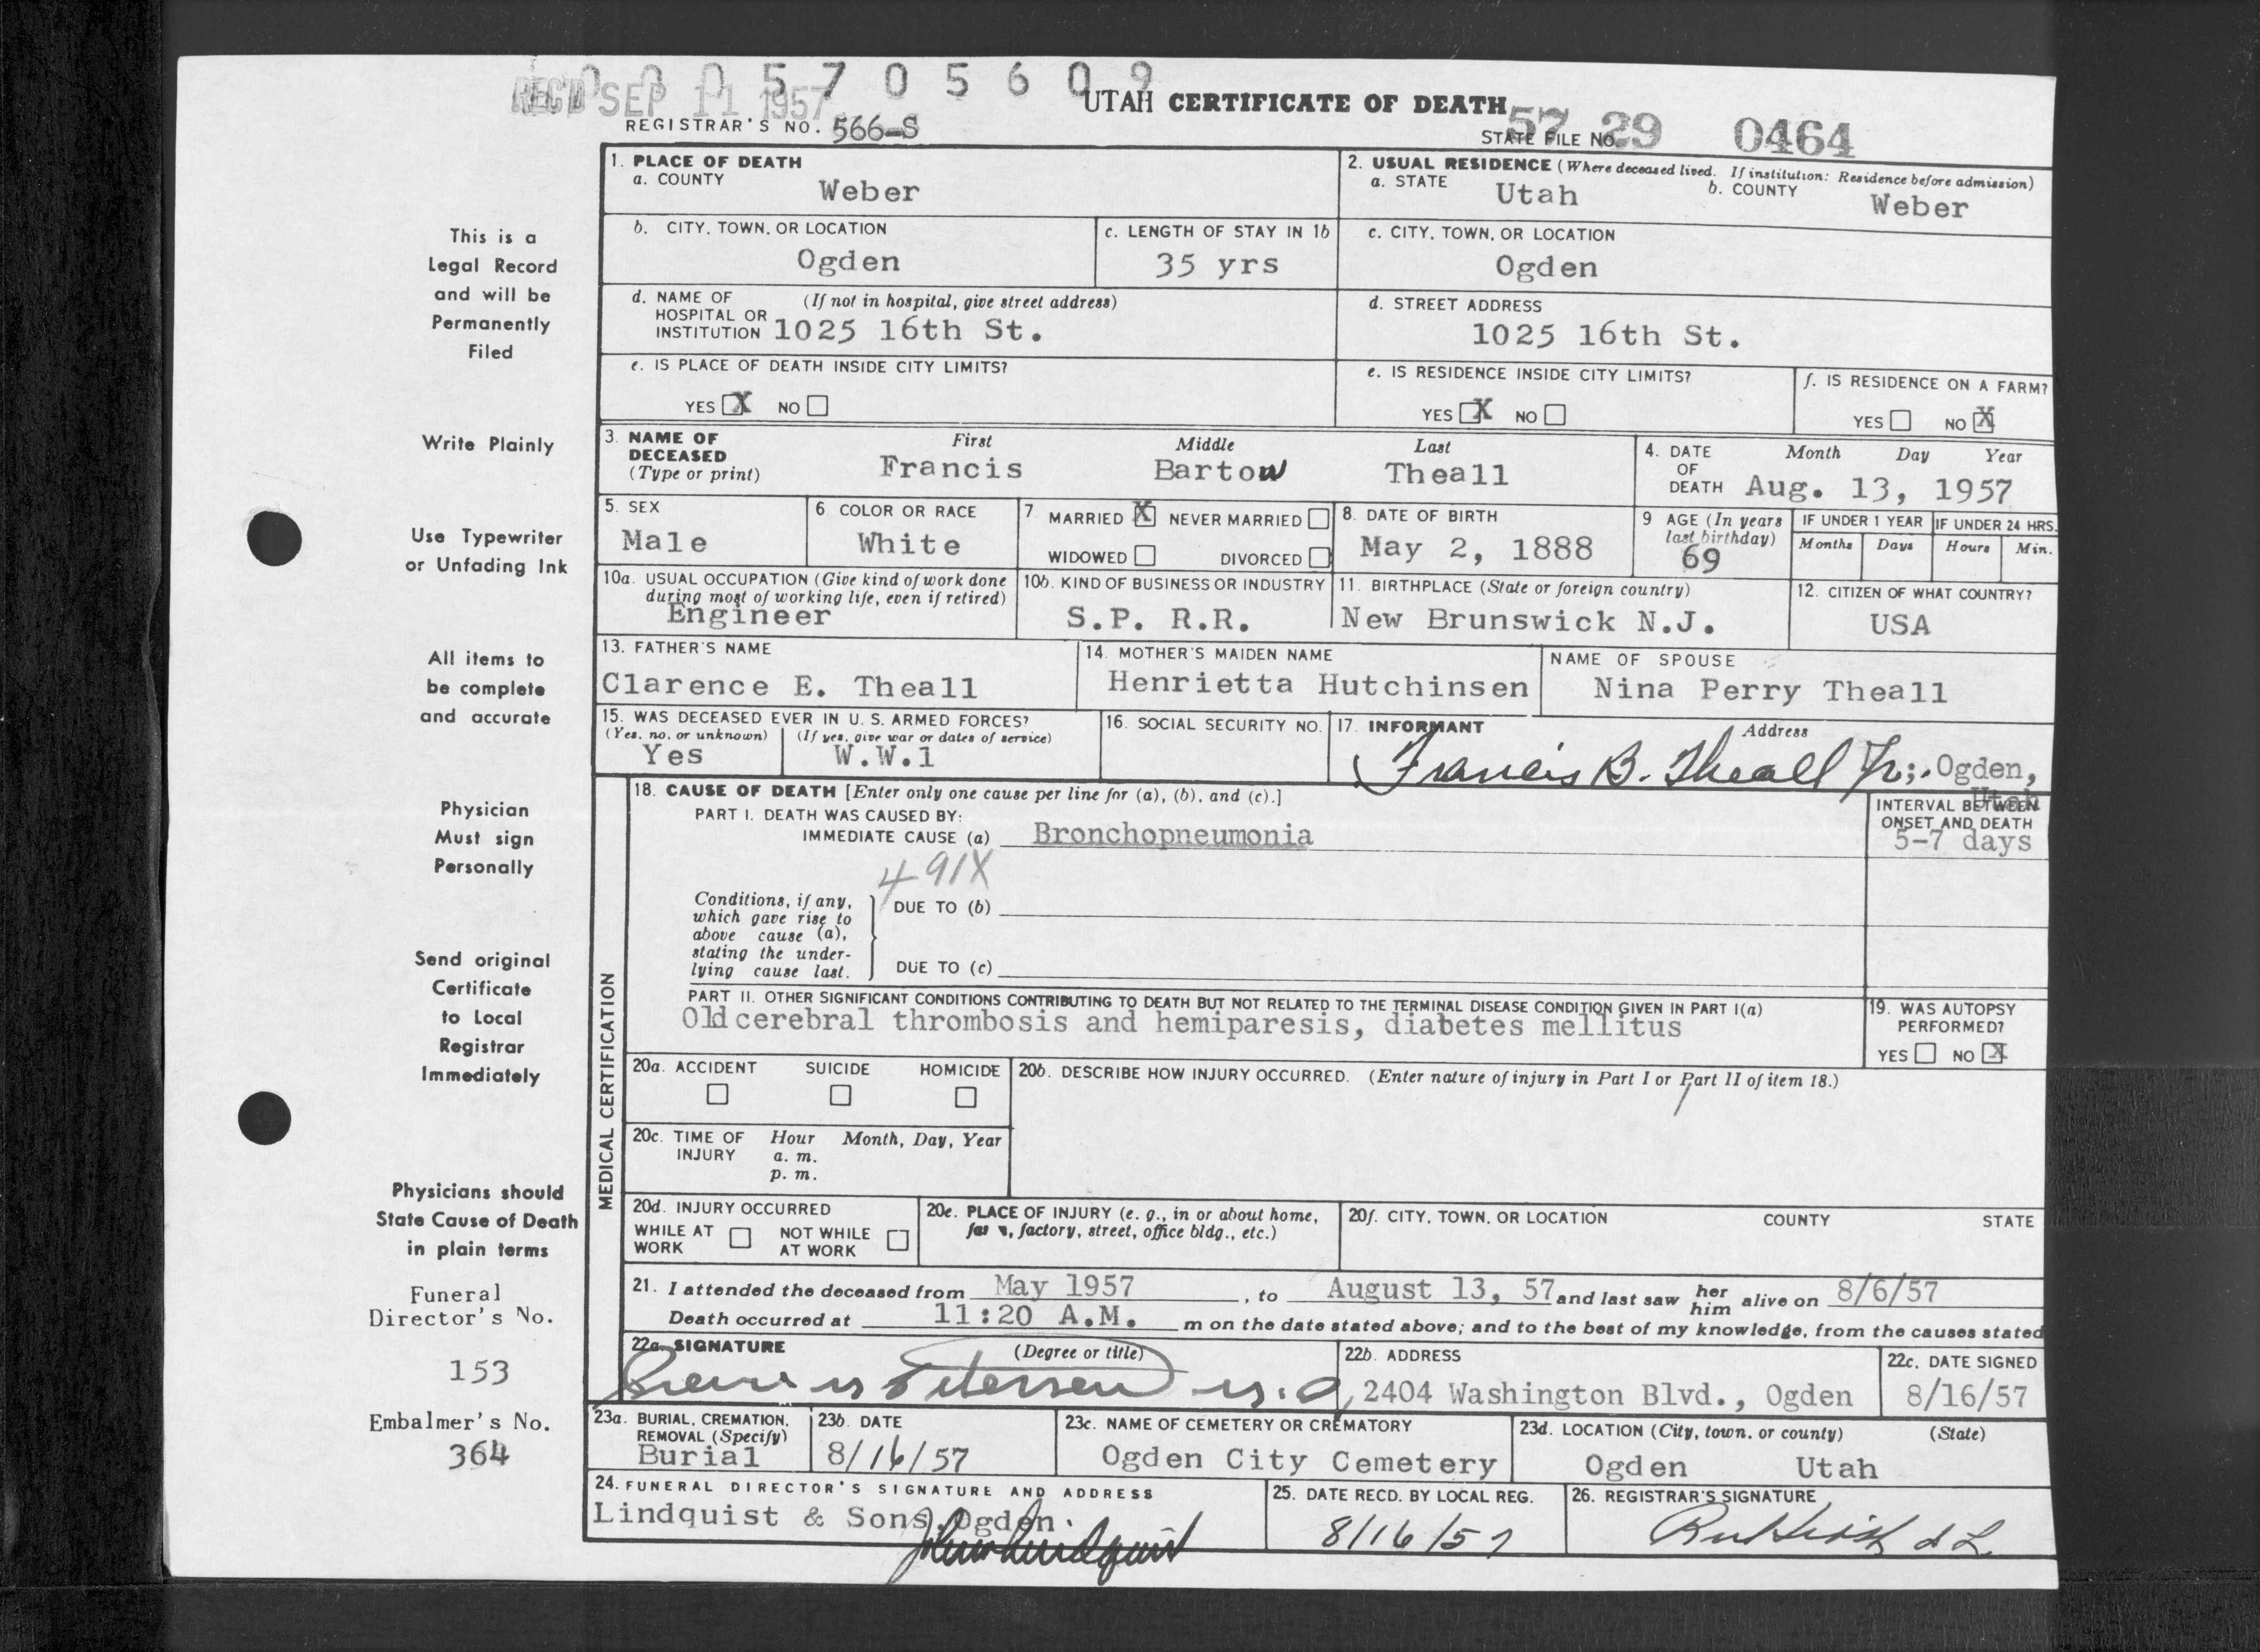 0005705609
REC'D SEP 11 1957
UTAH CERTIFICATE OF DEATH
REGISTRAR'S NO. 566-S
STATE FILE NO. 57 29 0464
This is a
Legal Record
and will be
Permanently
Filed
Write Plainly
Use Typewriter
or Unfading Ink
All items to
be complete
and accurate
Physician
Must sign
Personally
Send original
Certificate
to Local
Registrar
Immediately
Physicians should
State Cause of Death
in plain terms
Funeral
Director's No.
153
Embalmer's No.
364
1. PLACE OF DEATH
a. COUNTY
Weber
2. USUAL RESIDENCE (Where deceased lived. If institution: Residence before admission)
a. STATE Utah b. COUNTY Weber
b. CITY, TOWN, OR LOCATION
Ogden
c. LENGTH OF STAY IN 1b
35 yrs
c. CITY, TOWN, OR LOCATION
Ogden
d. NAME OF (If not in hospital, give street address)
HOSPITAL OR
INSTITUTION 1025 16th St.
d. STREET ADDRESS
1025 16th St.
e. IS PLACE OF DEATH INSIDE CITY LIMITS?
YES X NO
e. IS RESIDENCE INSIDE CITY LIMITS?
YES X NO
f. IS RESIDENCE ON A FARM?
YES NO X
3. NAME OF DECEASED (Type or print)
First Middle Last
Francis Bartow Theall
4. DATE OF DEATH
Month Day Year
Aug. 13, 1957
5. SEX
Male
6 COLOR OR RACE
White
7 MARRIED X NEVER MARRIED
WIDOWED DIVORCED
8. DATE OF BIRTH
May 2, 1888
9 AGE (In years last birthday)
69
IF UNDER 1 YEAR IF UNDER 24 HRS.
Months Days Hours Min.
10a. USUAL OCCUPATION (Give kind of work done
during most of working life, even if retired)
Engineer
10b. KIND OF BUSINESS OR INDUSTRY
S.P. R.R.
11. BIRTHPLACE (State or foreign country)
New Brunswick N.J.
12. CITIZEN OF WHAT COUNTRY?
USA
13. FATHER'S NAME
Clarence E. Theall
14. MOTHER'S MAIDEN NAME
Henrietta Hutchinsen
NAME OF SPOUSE
Nina Perry Theall
15. WAS DECEASED EVER IN U. S. ARMED FORCES?
(Yes, no, or unknown) (If yes, give war or dates of service)
Yes W.W.1
16. SOCIAL SECURITY NO.
17. INFORMANT Address
Francis B. Theall Jr;. Ogden,
Utah
18. CAUSE OF DEATH [Enter only one cause per line for (a), (b), and (c).]
PART I. DEATH WAS CAUSED BY:
IMMEDIATE CAUSE (a) Bronchopneumonia
INTERVAL BETWEEN
ONSET AND DEATH
5-7 days
491X
Conditions, if any,
which gave rise to
above cause (a),
stating the under-
lying cause last.
DUE TO (b)
DUE TO (c)
MEDICAL CERTIFICATION
PART II. OTHER SIGNIFICANT CONDITIONS CONTRIBUTING TO DEATH BUT NOT RELATED TO THE TERMINAL DISEASE CONDITION GIVEN IN PART I(a)
Old cerebral thrombosis and hemiparesis, diabetes mellitus
19. WAS AUTOPSY
PERFORMED?
YES NO X
20a. ACCIDENT SUICIDE HOMICIDE
20b. DESCRIBE HOW INJURY OCCURRED. (Enter nature of injury in Part I or Part II of item 18.)
20c. TIME OF INJURY Hour Month, Day, Year
a. m.
p. m.
20d. INJURY OCCURRED
WHILE AT WORK NOT WHILE AT WORK
20e. PLACE OF INJURY (e. g., in or about home,
farm, factory, street, office bldg., etc.)
20f. CITY, TOWN, OR LOCATION COUNTY STATE
21. I attended the deceased from May 1957, to August 13, 57 and last saw her him alive on 8/6/57
Death occurred at 11:20 A.M. m on the date stated above; and to the best of my knowledge, from the causes stated
22a. SIGNATURE (Degree or title)
Petersen M.D.
22b. ADDRESS
2404 Washington Blvd., Ogden
22c. DATE SIGNED
8/16/57
23a. BURIAL, CREMATION,
REMOVAL (Specify)
Burial
23b. DATE
8/16/57
23c. NAME OF CEMETERY OR CREMATORY
Ogden City Cemetery
23d. LOCATION (City, town, or county) (State)
Ogden Utah
24. FUNERAL DIRECTOR'S SIGNATURE AND ADDRESS
Lindquist & Sons, Ogden.
John Lindquist
25. DATE RECD. BY LOCAL REG.
8/16/57
26. REGISTRAR'S SIGNATURE